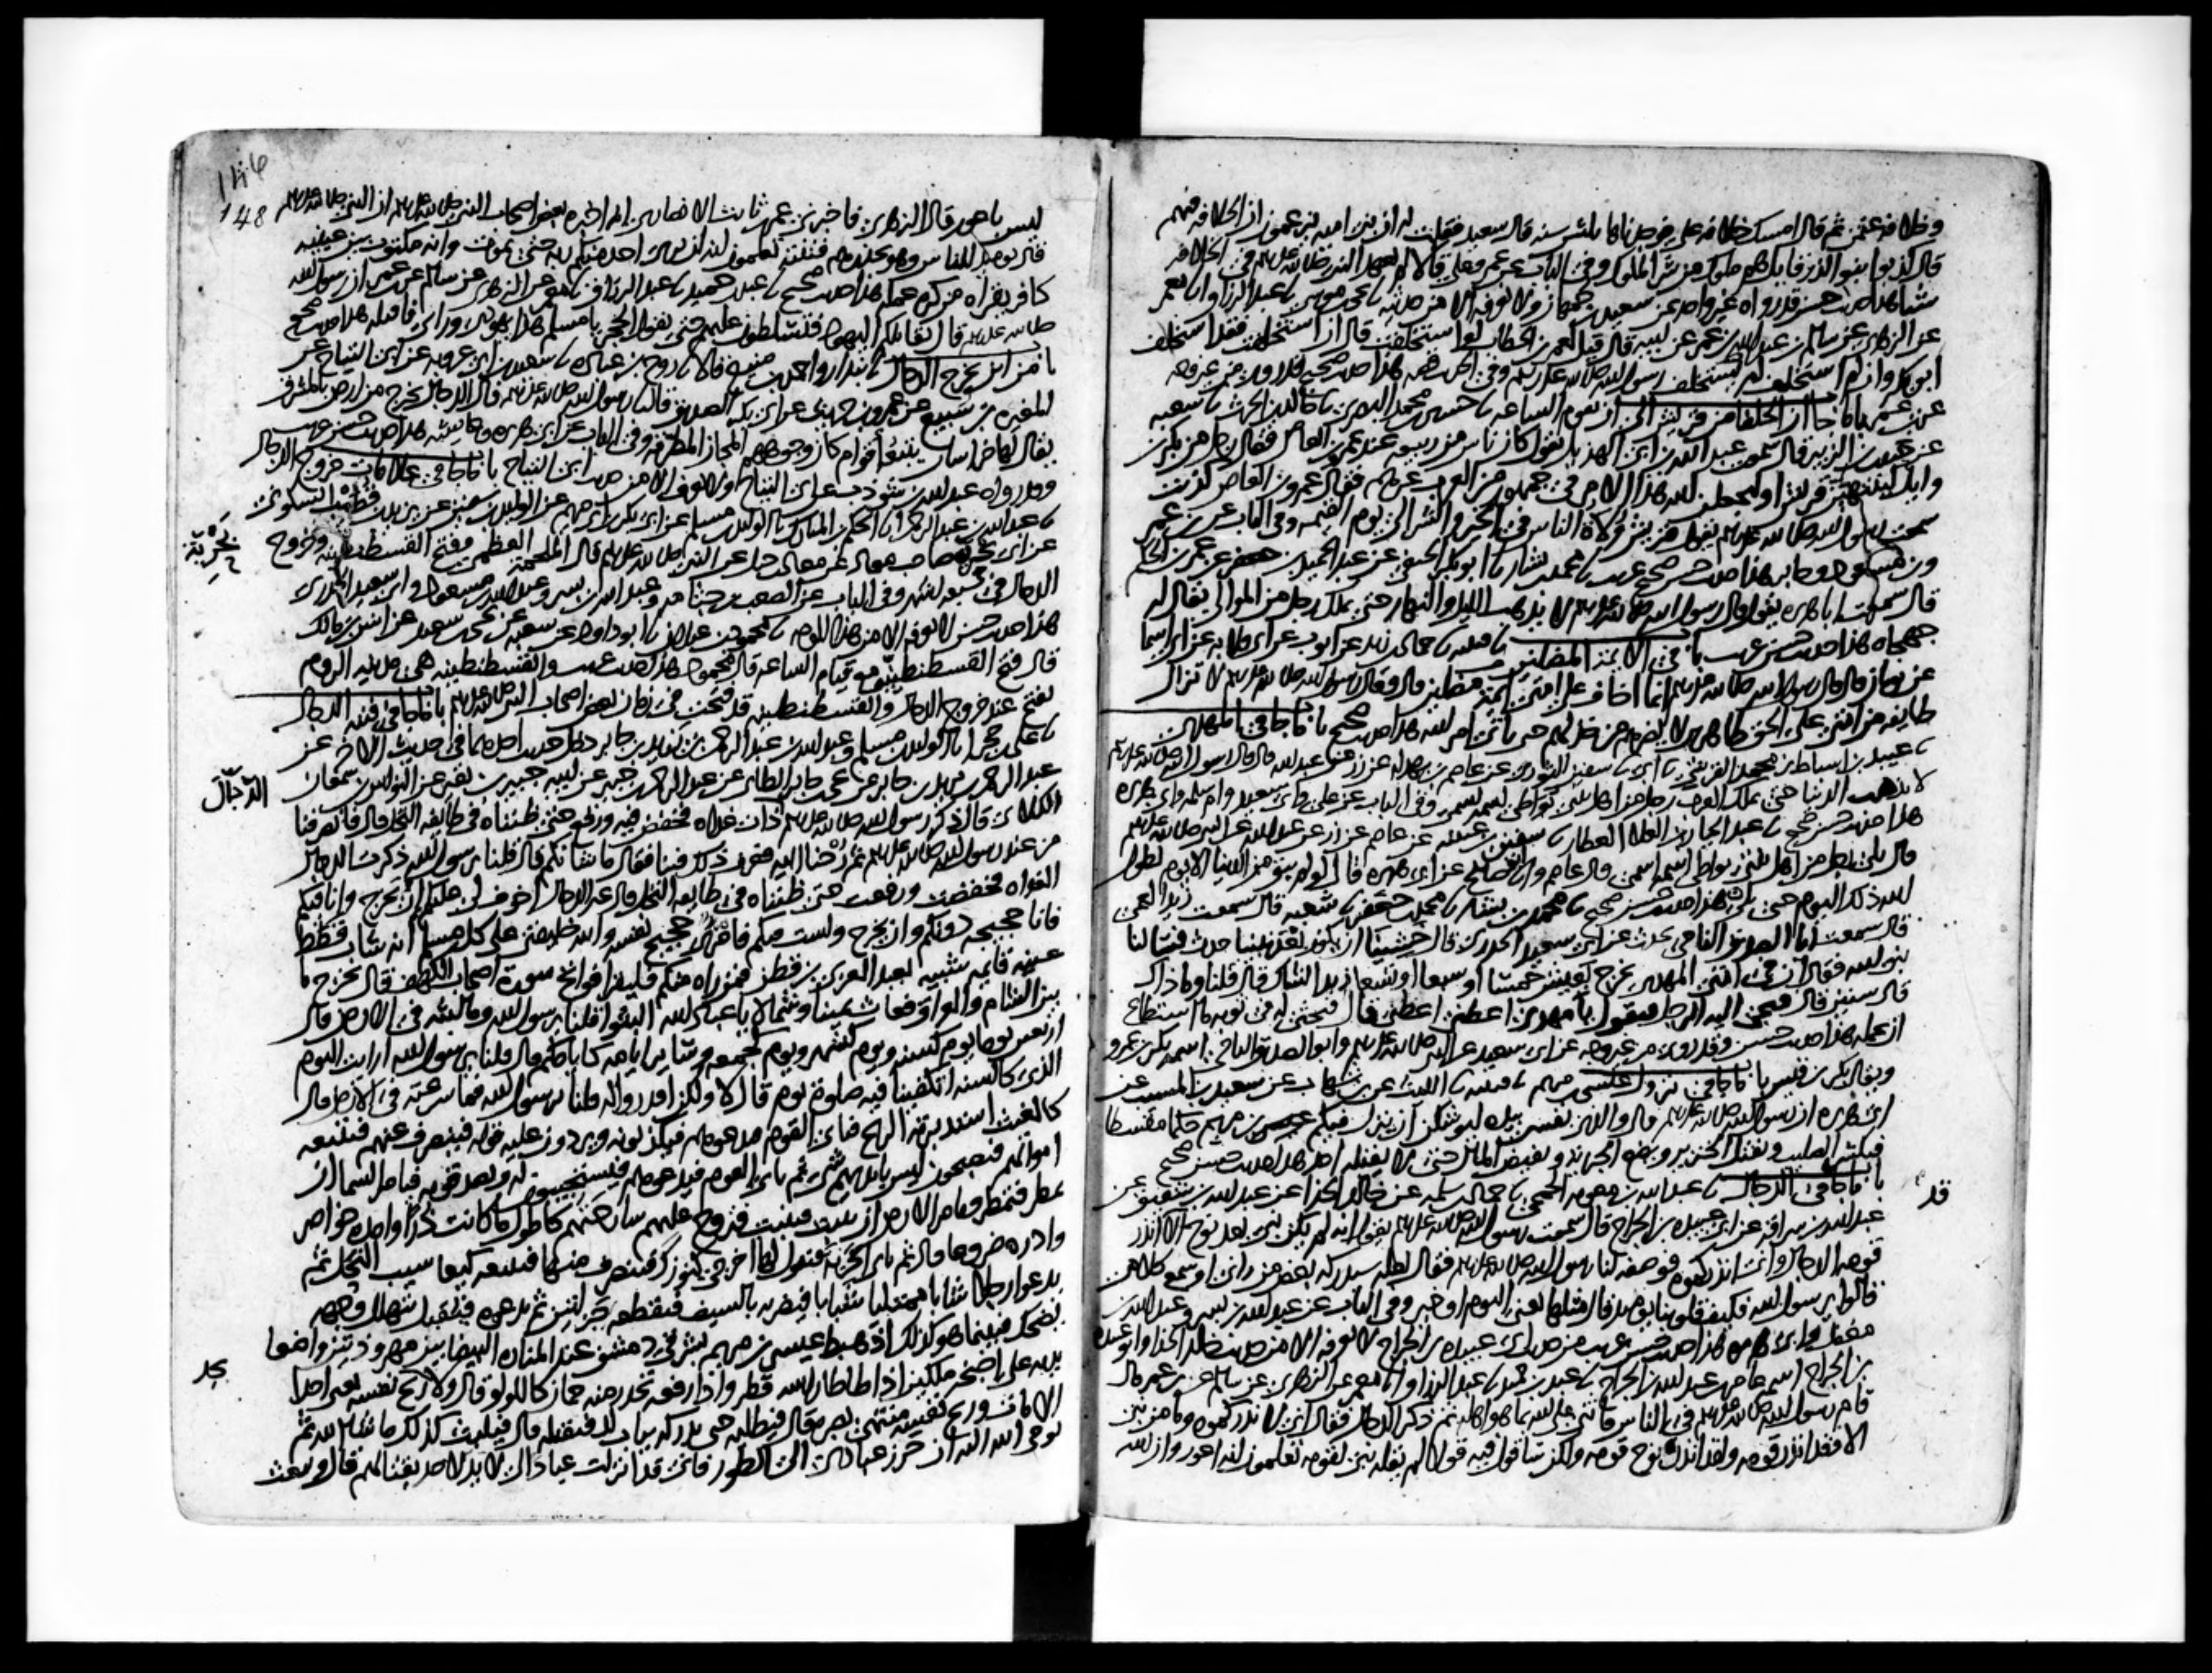 وخلافة عثمن ثم قال امسك خلافة علي فوجدناها ثلثين سنة قال سعيد فقلت له ان بني امية يزعمون ان الخلافة فيهم
قال كذبوا بنو الزرقا بل هم ملوك من شر الملوك وفي الباب عن عمر وعلي قالا لم يعهد النبي صلى الله عليه وسلم في الخلافة
شيا هذا حديث حسن قد رواه غير واحد عن سعيد بن جمهان ولا نعرفه الا من حديثه يحيى بن موسى عبد الرزاق انا معمر
عن الزهري عن سالم بن عبد الله بن عمر عن ابيه قال قيل لعمر بن الخطاب لو استخلفت قال ان استخلفت فقد استخلف
ابو بكر وان لم استخلف لم يستخلف رسول الله صلى الله عليه وسلم وفي الحديث قصة هذا حديث صحيح قد روي من غير وجه
عن ابن عمر باب ما جا ان الخلفا من قريش الى ان تقوم الساعة حسين بن محمد البصري خالد بن الحرث شعبة
عن حبيب بن الزبير قال سمعت عبد الله بن ابي الهذيل يقول كان ناس من ربيعة عند عمرو بن العاص فقال رجل من بكر بن
وايل لتنتهين قريش او ليجعلن الله هذا الامر في جمهور من العرب غيرهم فقال عمرو بن العاص كذبت
سمعت رسول الله صلى الله عليه وسلم يقول قريش ولاة الناس في الخير والشر الى يوم القيمة وفي الباب عن ابن عمر
وابن مسعود وجابر هذا حديث حسن صحيح غريب محمد بن بشار ابو بكر الحنفي عن عبد الحميد بن جعفر عن عمر بن الحكم
قال سمعت ابا هريرة يقول قال رسول الله صلى الله عليه وسلم لا يذهب الليل والنهار حتى يملك رجل من الموالي يقال له
جهجاه هذا حديث حسن غريب باب في الايمة المضلين قتيبة حماد بن زيد عن ايوب عن ابي قلابة عن ابي اسما
عن ثوبان قال قال رسول الله صلى الله عليه وسلم انما اخاف على امتي ايمة مضلين قال وقال رسول الله صلى الله عليه وسلم لا تزال
طايفة من امتي على الحق ظاهرين لا يضرهم من خذلهم حتى ياتي امر الله هذا حديث صحيح باب ما جا في المهدي
عبيد بن اسباط بن محمد القرشي ابي سفين الثوري عن عاصم بن بهدلة عن زر عن عبد الله قال قال رسول الله صلى الله عليه وسلم
لا تذهب الدنيا حتى يملك العرب رجل من اهل بيتي يواطي اسمه اسمي وفي الباب عن علي وابي سعيد وام سلمة وابي هريرة
هذا حديث حسن صحيح عبد الجبار بن العلا العطار سفين بن عيينة عن عاصم عن زر عن عبد الله عن النبي صلى الله عليه وسلم
قال يلي رجل من اهل بيتي يواطي اسمه اسمي قال عاصم وانا ابو صالح عن ابي هريرة قال لو لم يبق من الدنيا الا يوم لطول
الله ذلك اليوم حتى يلي هذا حديث حسن صحيح محمد بن بشار محمد بن جعفر شعبة قال سمعت زيدا العمي
قال سمعت ابا الصديق الناجي يحدث عن ابي سعيد الخدري قال خشينا ان يكون بعد نبينا حدث فسالنا
نبي الله فقال ان في امتي المهدي يخرج يعيش خمسا او سبعا او تسعا زيد الشاك قال قلنا وما ذاك
قال سنين قال فيجي اليه الرجل فيقول يا مهدي اعطني اعطني قال فيحثي له في ثوبه ما استطاع
ان يحمله هذا حديث حسن وقد روي من غير وجه عن ابي سعيد عن النبي صلى الله عليه وسلم وابو الصديق الناجي اسمه بكر بن عمرو
ويقال بكر بن قيس باب ما جا في نزول عيسى بن مريم قتيبة الليث عن ابن شهاب عن سعيد بن المسيب عن
ابي هريرة ان رسول الله صلى الله عليه وسلم قال والذي نفسي بيده ليوشكن ان ينزل فيكم ابن مريم حكما مقسطا
فيكسر الصليب ويقتل الخنزير ويضع الجزية ويفيض المال حتى لا يقبله احد هذا حديث حسن صحيح
باب ما جا في الدجال عبد الله بن معوية الجمحي حماد بن سلمة عن خالد الحذا عن عبد الله بن شقيق عن
قد
عبد الله بن سراقة عن ابي عبيدة بن الجراح قال سمعت رسول الله صلى الله عليه وسلم يقول انه لم يكن نبي بعد نوح الا انذر
قومه الدجال واني انذركموه فوصفه لنا رسول الله صلى الله عليه وسلم فقال لعله سيدركه بعض من راني او سمع كلامي
قالوا يا رسول الله فكيف قلوبنا يومئذ قال مثلها يعني اليوم او خير وفي الباب عن عبد الله بن بسر وعبد الله بن
مغفل وابي هريرة هذا حديث حسن غريب من حديث ابي عبيدة بن الجراح لا نعرفه الا من حديث خالد الحذا وابو عبيدة
بن الجراح اسمه عامر بن عبد الله بن الجراح عبد بن حميد عبد الرزاق انا معمر عن الزهري عن سالم عن ابن عمر قال
قام رسول الله صلى الله عليه وسلم في الناس فاثنى على الله بما هو اهله ثم ذكر الدجال فقال اني لانذركموه وما من نبي
الا وقد انذر قومه ولقد انذر نوح قومه ولكن ساقول فيه قولا لم يقله نبي لقومه تعلمون انه اعور وان الله
148
ليس باعور قال الزهري فاخبرني عمر بن ثابت الانصاري انه اخبره بعض اصحاب النبي صلى الله عليه وسلم ان النبي صلى الله عليه وسلم
قال يومئذ للناس وهو يحذرهم فتنته تعلمون انه لن يرى احد منكم ربه حتى يموت وانه مكتوب بين عينيه
كافر يقراه من كره عمله هذا حديث صحيح عبد بن حميد عبد الرزاق معمر عن الزهري عن سالم عن ابن عمر ان رسول الله
صلى الله عليه وسلم قال تقاتلكم اليهود فتسلطون عليهم حتى يقول الحجر يا مسلم هذا يهودي وراي فاقتله هذا حديث صحيح
باب من اين يخرج الدجال بندار واحمد بن منيع قالا روح بن عبادة سعيد بن ابي عروبة عن ابي التياح عن
المغيرة بن سبيع عن عمرو بن حريث عن ابي بكر الصديق قال رسول الله صلى الله عليه وسلم قال الدجال يخرج من ارض بالمشرق
يقال لها خراسان يتبعه اقوام كان وجوههم المجان المطرقة وفي الباب عن ابي هريرة وعايشة هذا حديث حسن غريب
وقد رواه عبد الله بن شوذب عن ابي التياح ولا نعرفه الا من حديث ابي التياح باب ما جا في علامات خروج الدجال
عبد الله بن عبد الرحمن الحكم بن المبارك الوليد بن مسلم عن ابي بكر بن ابي مريم عن الوليد بن سفين عن يزيد بن قطيب السكوني
بحرية
عن ابي بحرية صاحب معاذ عن معاذ بن جبل عن النبي صلى الله عليه وسلم قال الملحمة العظمى وفتح القسطنطينية وخروج
الدجال في سبعة اشهر وفي الباب عن الصعب بن جثامة وعبد الله بن بسر وعبد الله بن مسعود وابي سعيد الخدري
هذا حديث حسن لا نعرفه الا من هذا الوجه محمود بن غيلان ابو داود عن شعبة عن يحيى بن سعيد عن انس بن مالك
قال فتح القسطنطينية مع قيام الساعة قال محمود هذا حديث غريب والقسطنطينية هي مدينة الروم
تفتح عند خروج الدجال والقسطنطينية قد فتحت في زمان بعض اصحاب النبي صلى الله عليه وسلم باب ما جا في فتنة الدجال
علي بن حجر انا الوليد بن مسلم وعبد الله بن عبد الرحمن بن يزيد بن جابر دخل حديث احدهما في حديث الاخر عن
عبد الرحمن بن يزيد بن جابر عن يحيى بن جابر الطائي عن عبد الرحمن بن جبير عن ابيه جبير بن نفير عن النواس بن سمعان
الدجال
الكلابي قال ذكر رسول الله صلى الله عليه وسلم الدجال ذات غداة فخفض فيه ورفع حتى ظنناه في طايفة النخل قال فانصرفنا
من عند رسول الله صلى الله عليه وسلم ثم رحنا اليه فعرف ذلك فينا فقال ما شانكم قال قلنا يا رسول الله ذكرت الدجال
الغداة فخفضت ورفعت حتى ظنناه في طايفة النخل قال غير الدجال اخوف لي عليكم ان يخرج وانا فيكم
فانا حجيجه دونكم وان يخرج ولست فيكم فامرؤ حجيج نفسه والله خليفتي على كل مسلم انه شاب قطط
عينه قايمة شبيه بعبد العزى بن قطن فمن راه منكم فليقرا فواتح سورة اصحاب الكهف قال يخرج ما
بين الشام والعراق فعاث يمينا وشمالا يا عباد الله اثبتوا قلنا يا رسول الله وما لبثه في الارض قال
اربعين يوما يوم كسنة ويوم كشهر ويوم كجمعة وساير ايامه كايامكم قال قلنا يا رسول الله ارايت اليوم
الذي كالسنة اتكفينا فيه صلوة يوم قال لا ولكن اقدروا له قلنا يا رسول الله فما سرعته في الارض قال
كالغيث استدبرته الريح فياتي القوم فيدعوهم فيكذبونه ويردون عليه قوله فينصرف عنهم فتتبعه
اموالهم فيصبحون ليس بايديهم شي ثم ياتي القوم فيدعوهم فيستجيبون له ويصدقونه فيامر السما ان
تمطر فتمطر ويامر الارض ان تنبت فتنبت فتروح عليهم سارحتهم كاطول ما كانت ذرا وامده خواصر
وادره ضروعا قال ثم ياتي الخربة فيقول لها اخرجي كنوزك فينصرف منها فتتبعه كيعاسيب النحل ثم
يدعوا رجلا شابا ممتليا شبابا فيضربه بالسيف فيقطعه جزلتين ثم يدعوه فيقبل يتهلل وجهه
يضحك فبينما هو كذلك اذ هبط عيسى بن مريم بشرقي دمشق عند المنارة البيضا بين مهرودتين واضعا
يديه على اجنحة ملكين اذا طاطا راسه قطر واذا رفعه تحدر منه جمان كاللولو قال ولا يجد ريح نفسه يعني احدا
الا مات وريح نفسه منتهى بصره قال فيطلبه حتى يدركه بباب لد فيقتله قال فيلبث كذلك ما شا الله ثم
يوحي الله اليه ان حرز عبادي الى الطور فاني قد انزلت عبادا لي لا يد لاحد بقتالهم قال ويبعث